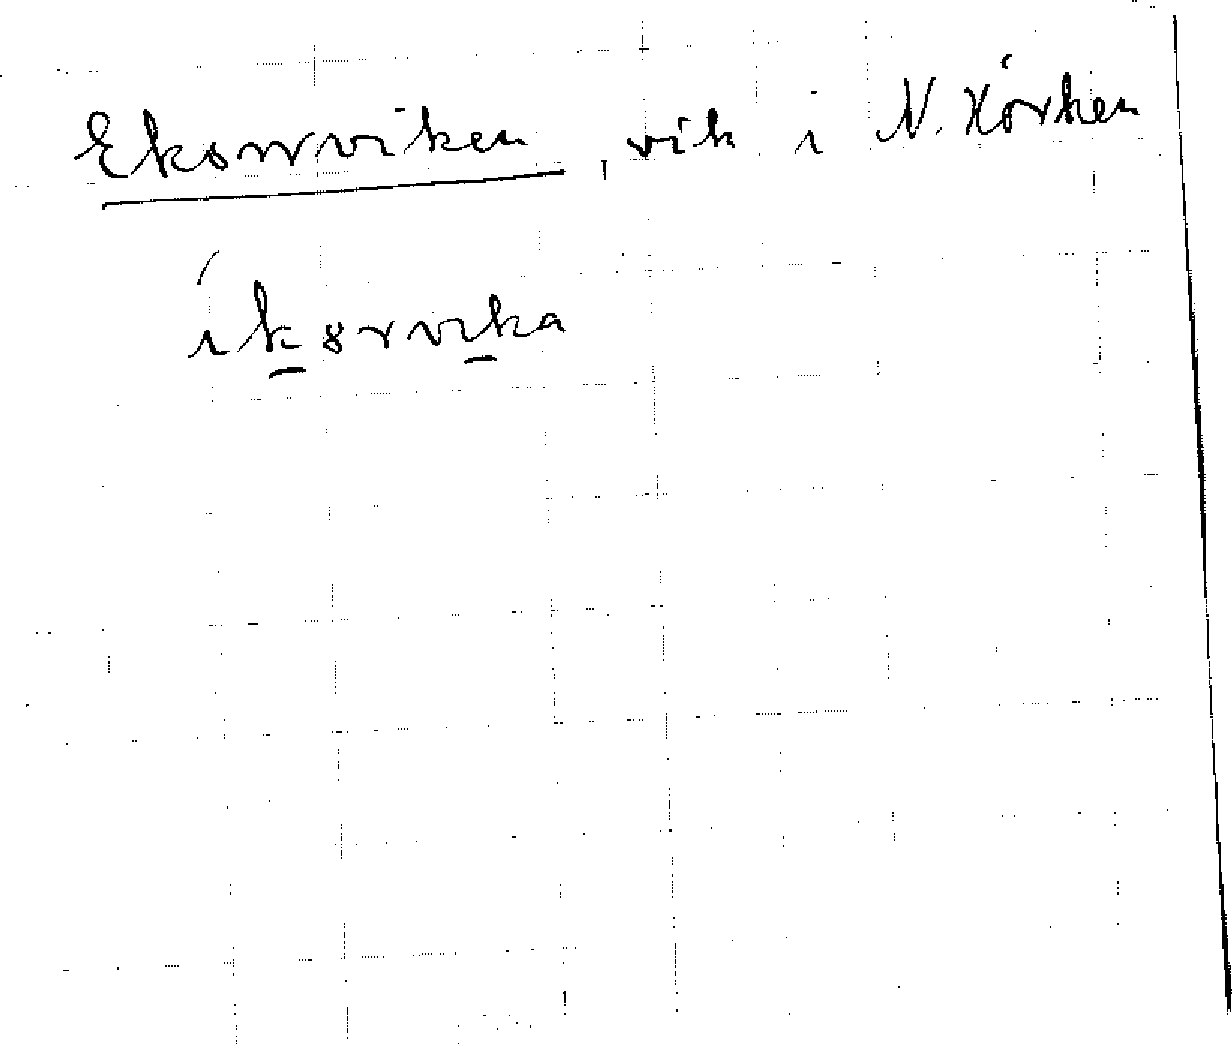 Ekorrviken, vik i N. Hörken
íkorvika